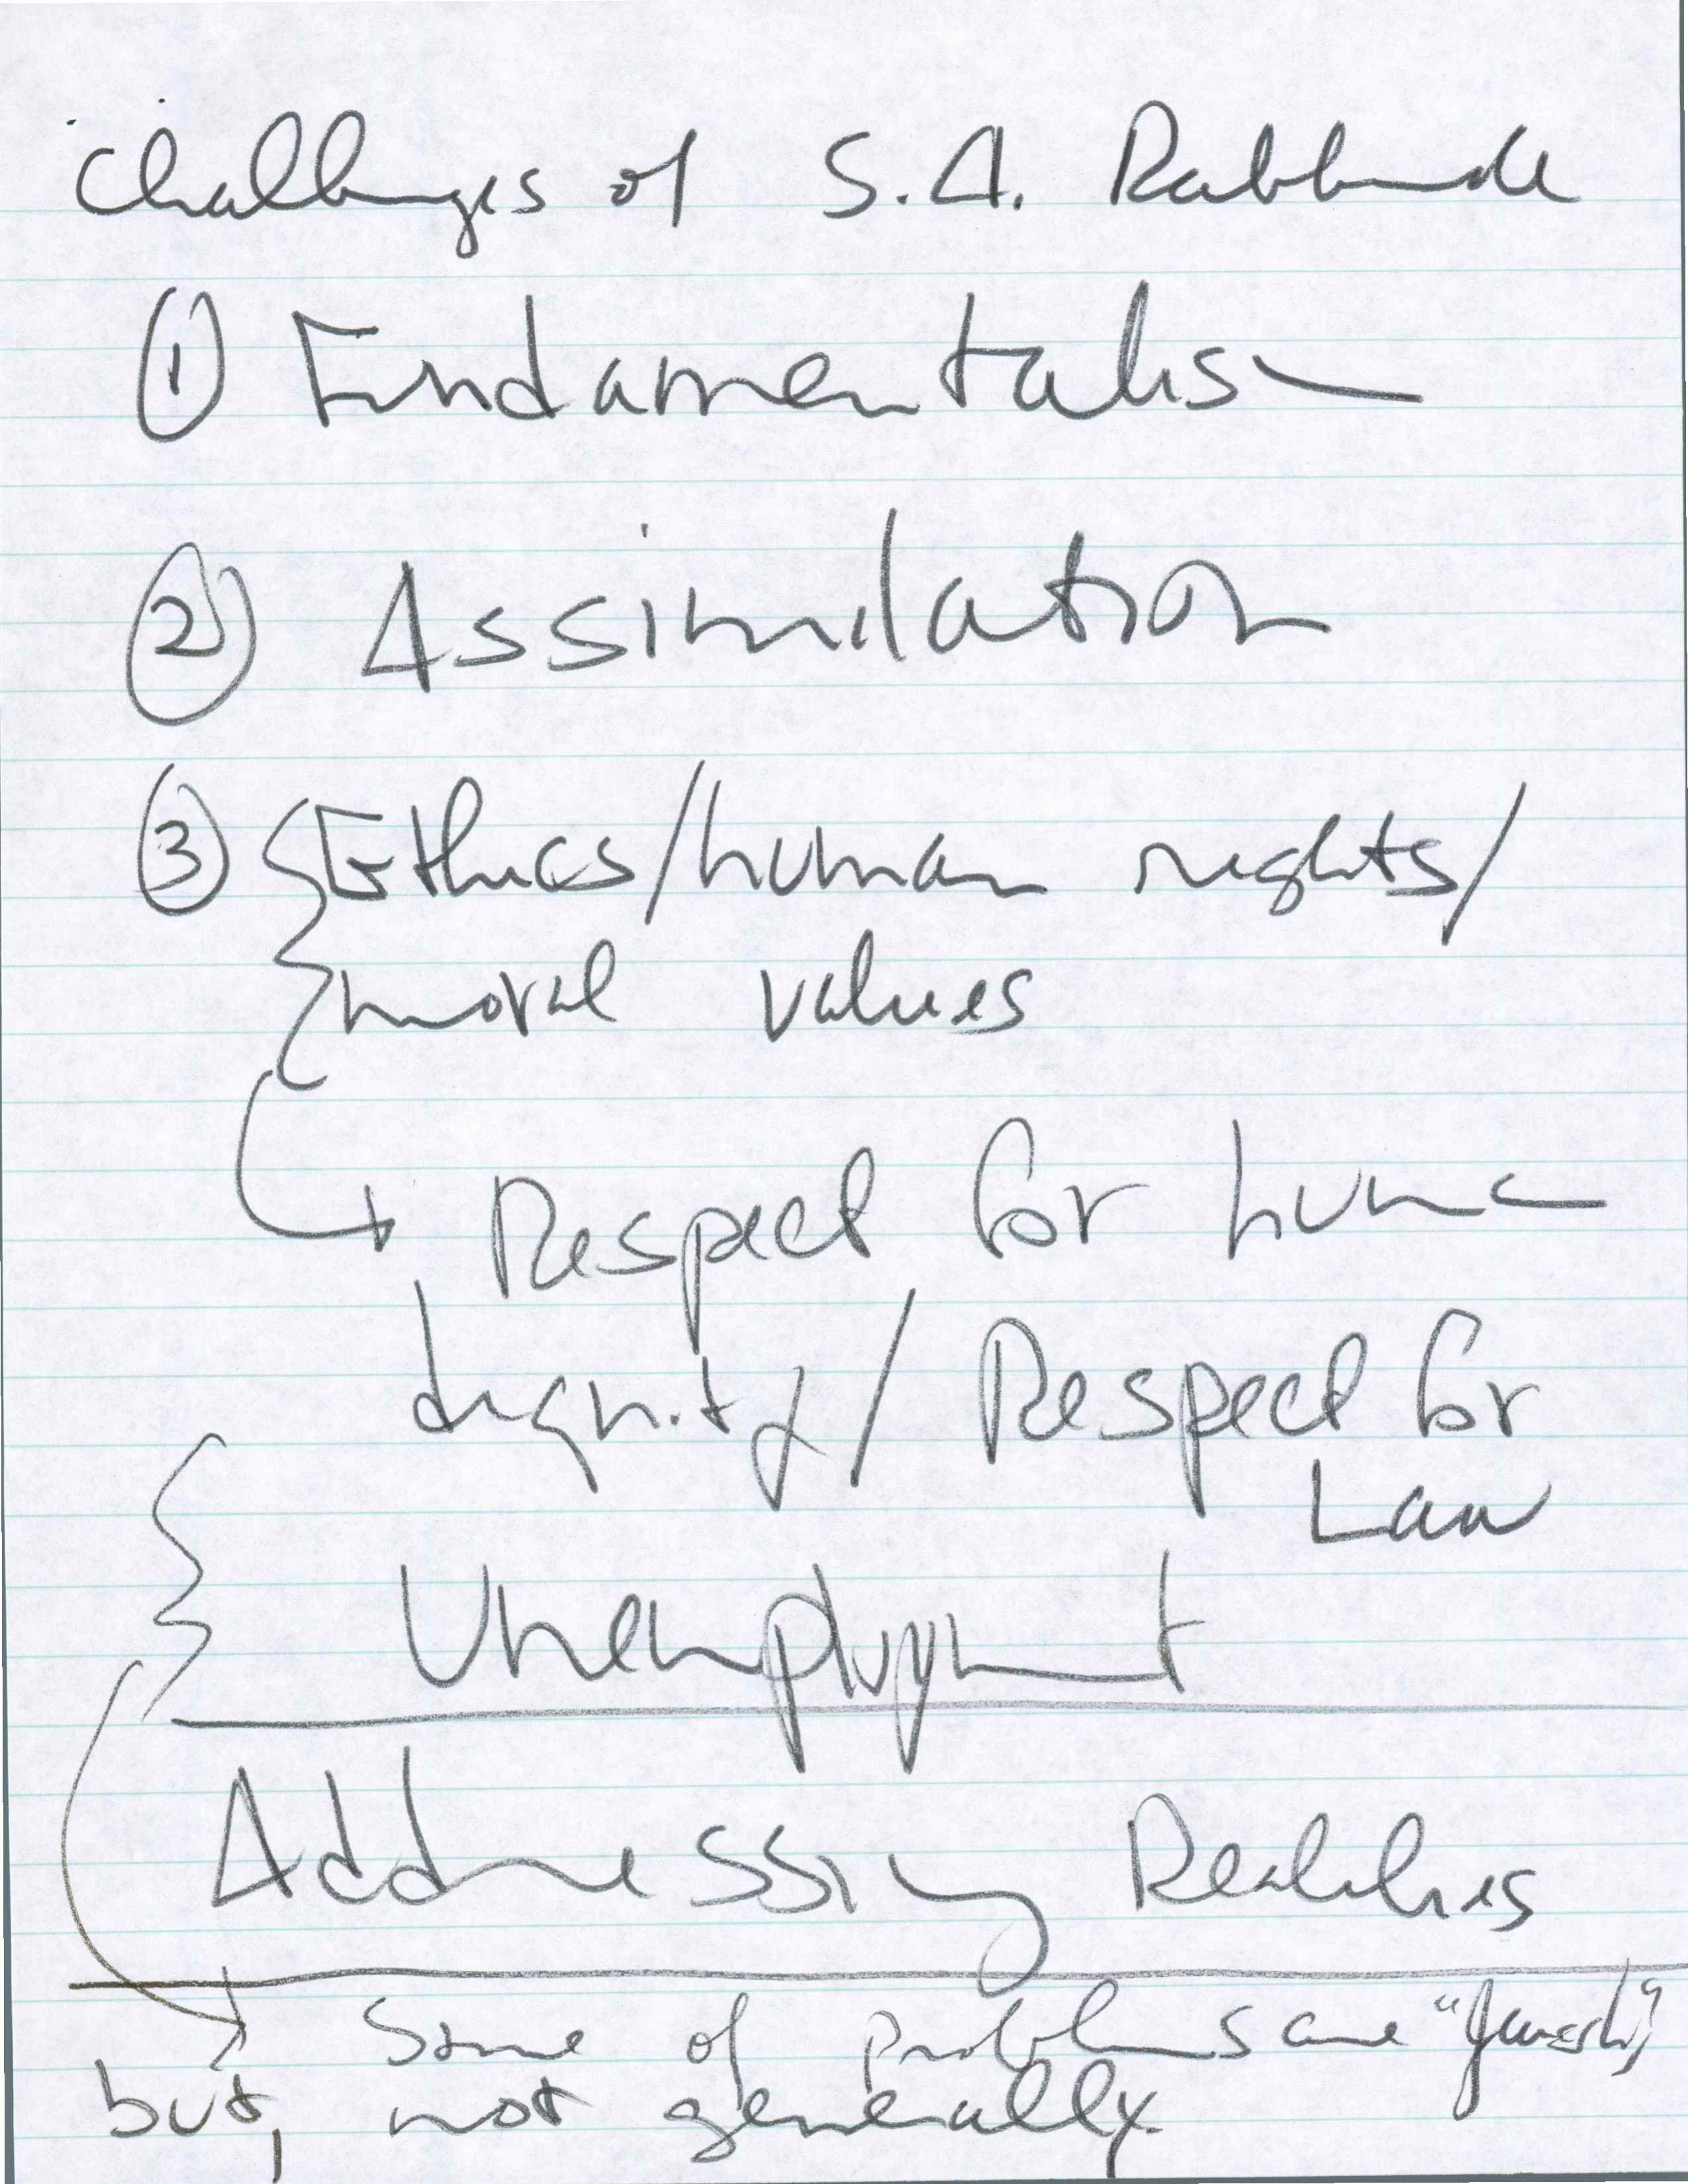 Challenges of S.A. Rabbinate
① Fundamentalism
② Assimilation
③ Ethics/human rights/
moral values
Respect for human
dignity/Respect for
Law
Unemployment
Addressing Realities
Some of problems are "Jewish"
but, not generally.